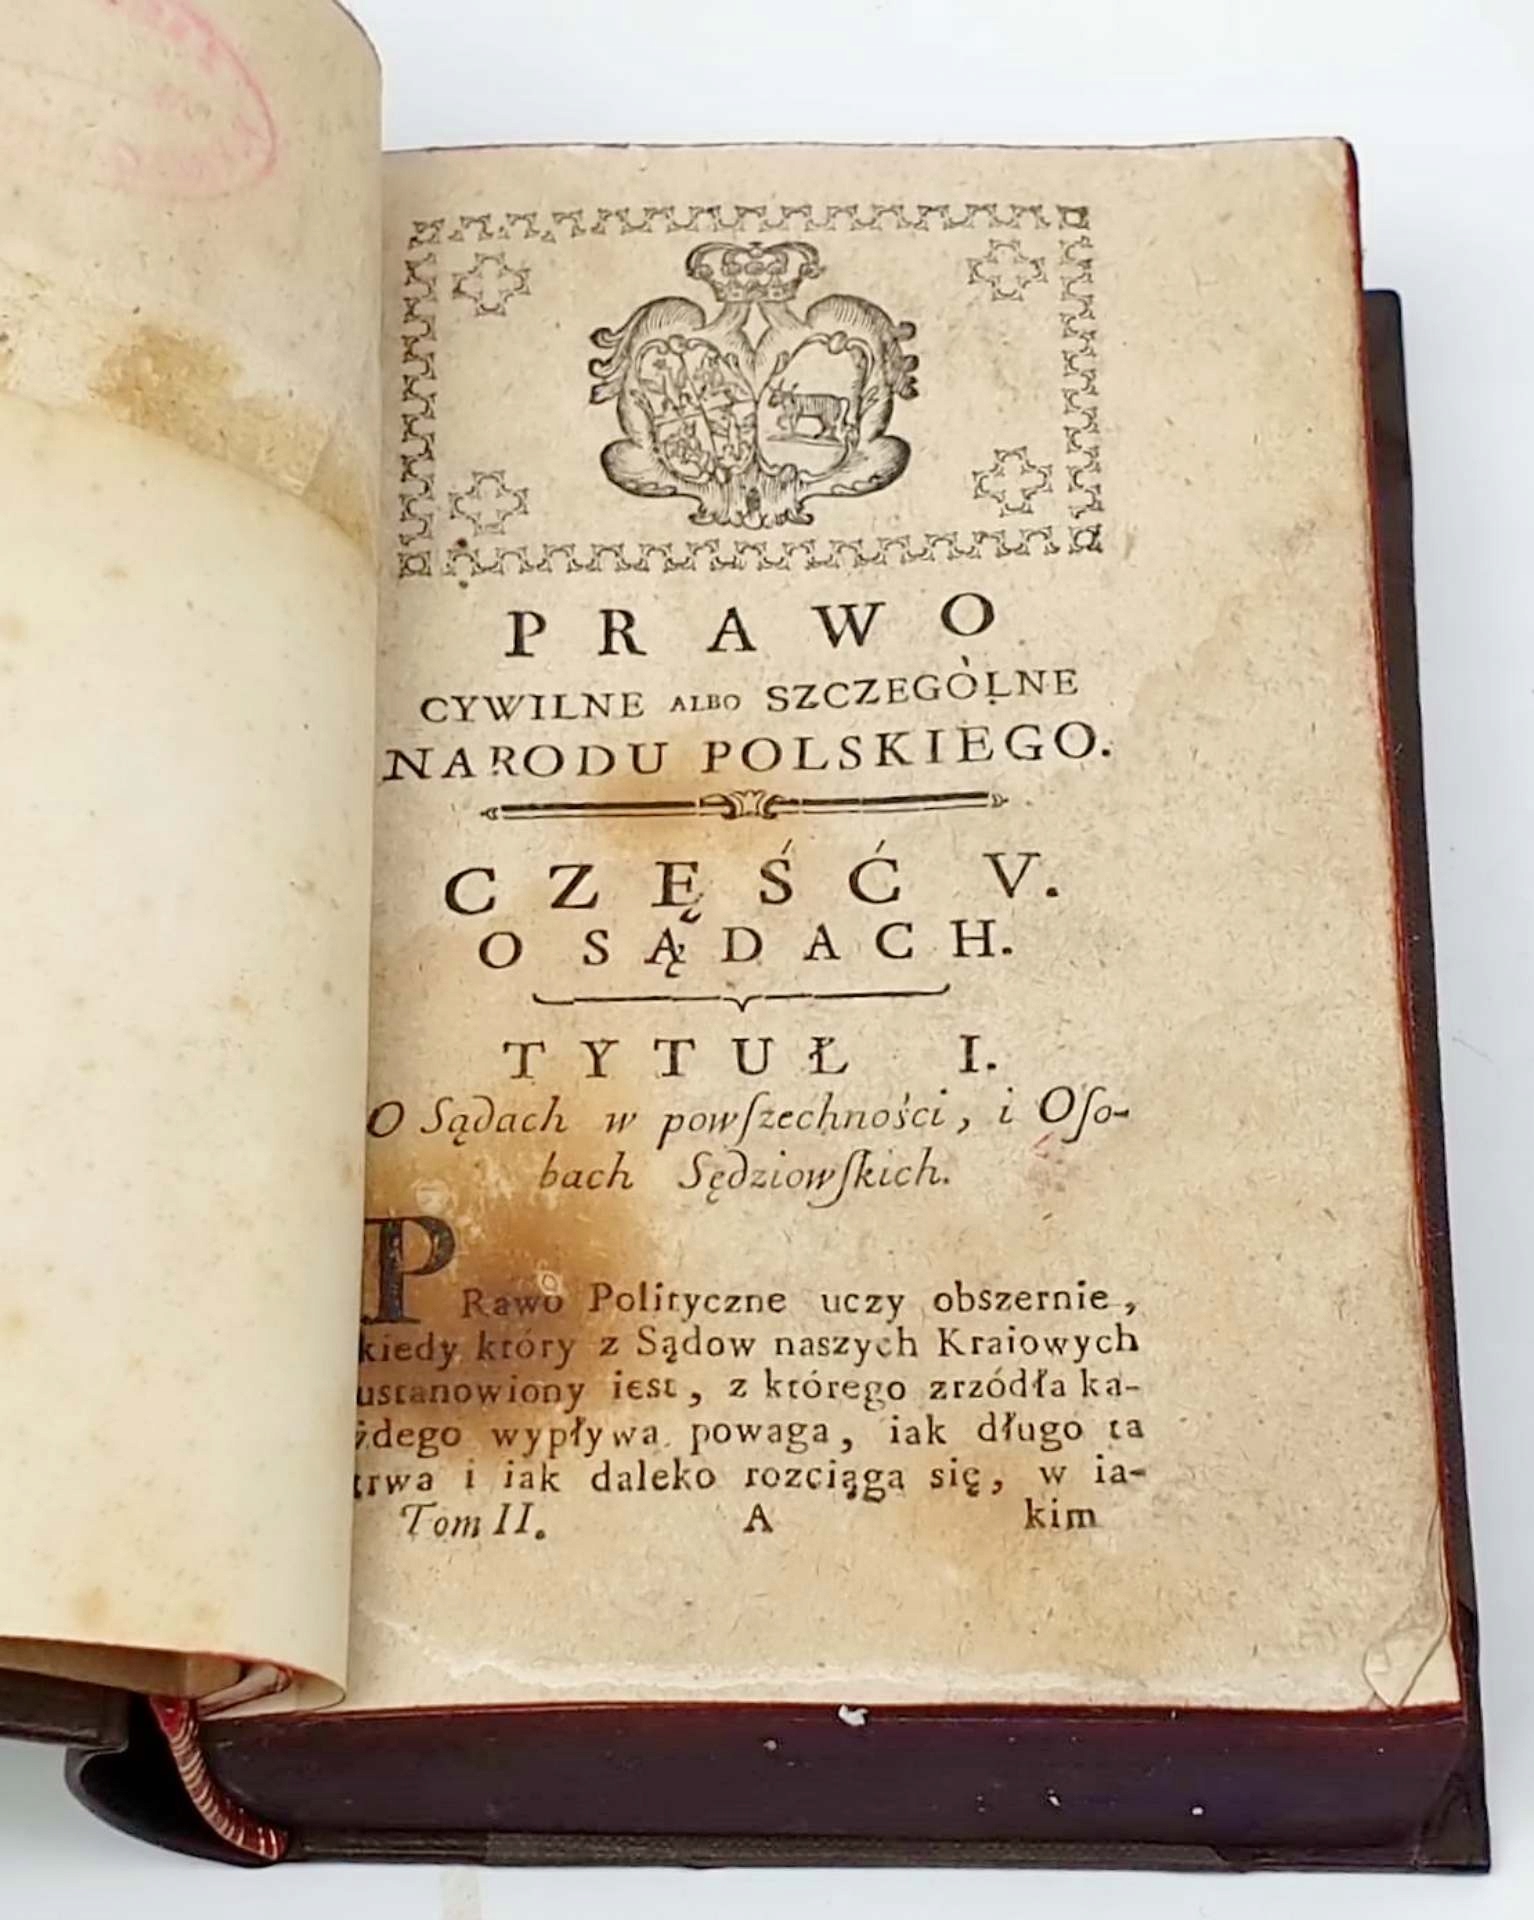 PRAWO
CYWILNE ALBO SZCZEGÒLNE
NARODU POLSKIEGO.
CZĘŚĆ V.
O SĄDACH.
TYTUŁ I.
O Sądach w powſzechności, i Oſo-
bach Sędziowſkich.
PRawo Polityczne uczy obszernie,
kiedy który z Sądow naszych Kraiowych
ustanowiony iest, z którego zrzódła ka-
żdego wypływa powaga, iak długo ta
trwa i iak daleko rozciąga się, w ia-
Tom II. A kim